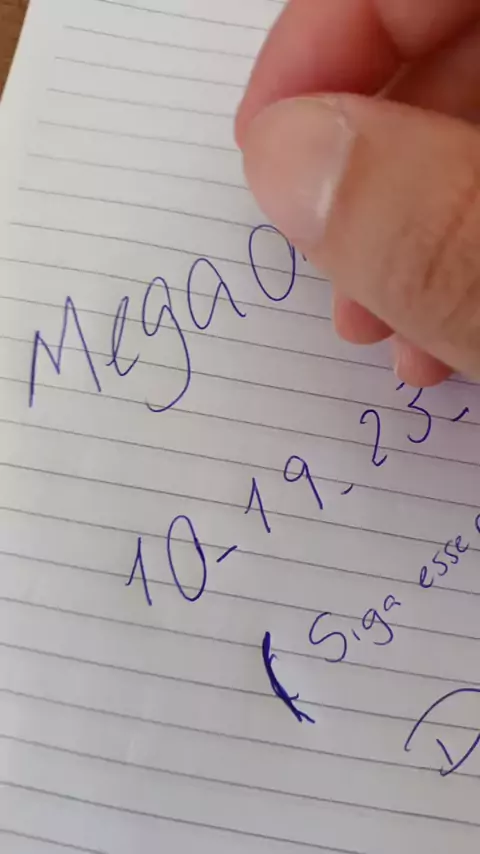 Mega
10-19-23-
Siga esse